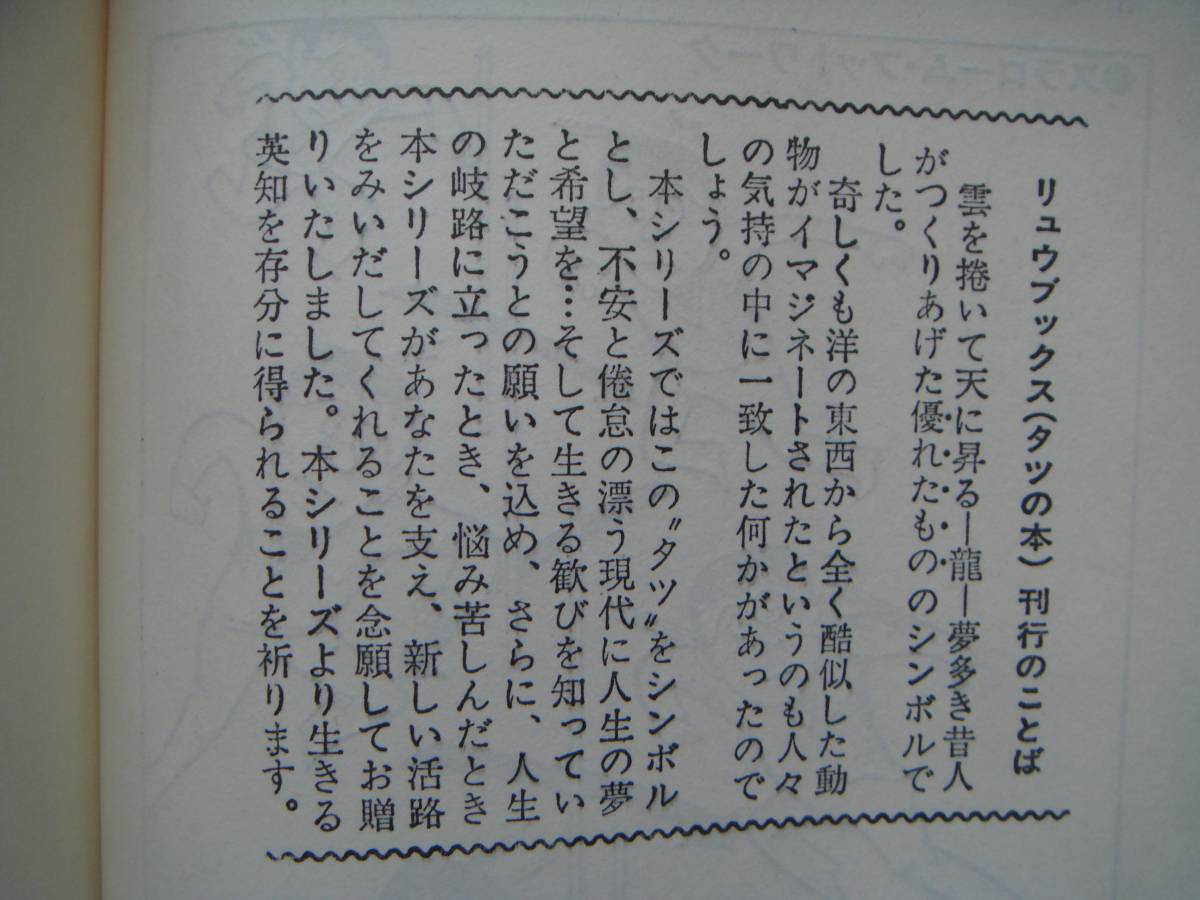 リュウブックス(タツの本) 刊行のことば
雲を捲いて天に昇る―龍―夢多き昔人
がつくりあげた優れたもののシンボルで
した。
奇しくも洋の東西から全く酷似した動
物がイマジネートされたというのも人々
の気持の中に一致した何かがあったので
しょう。
本シリーズではこの〝タツ〟をシンボル
とし、不安と倦怠の漂う現代に人生の夢
と希望を…そして生きる歓びを知ってい
ただこうとの願いを込め、さらに、人生
の岐路に立ったとき、悩み苦しんだとき
本シリーズがあなたを支え、新しい活路
をみいだしてくれることを念願してお贈
りいたしました。本シリーズより生きる
英知を存分に得られることを祈ります。
●スラローム・フットワーク